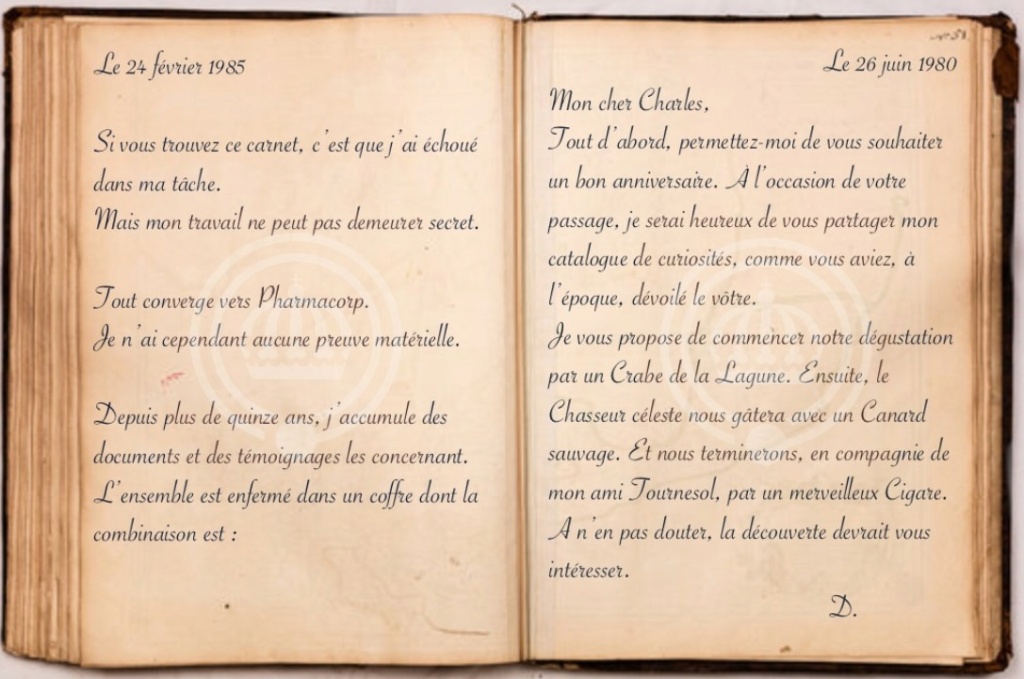 Le 24 février 1985
Si vous trouvez ce carnet, c'est que j'ai échoué
dans ma tâche.
Mais mon travail ne peut pas demeurer secret.
Tout converge vers Pharmacorp.
Je n'ai cependant aucune preuve matérielle.
Depuis plus de quinze ans, j'accumule des
documents et des témoignages les concernant.
L'ensemble est enfermé dans un coffre dont la
combinaison est :
Le 26 juin 1980
Mon cher Charles,
Tout d'abord, permettez-moi de vous souhaiter
un bon anniversaire. À l'occasion de votre
passage, je serai heureux de vous partager mon
catalogue de curiosités, comme vous aviez, à
l'époque, dévoilé le vôtre.
Je vous propose de commencer notre dégustation
par un Crabe de la Lagune. Ensuite, le
Chasseur céleste nous gâtera avec un Canard
sauvage. Et nous terminerons, en compagnie de
mon ami Tournesol, par un merveilleux Cigare.
A n'en pas douter, la découverte devrait vous
intéresser.
D.